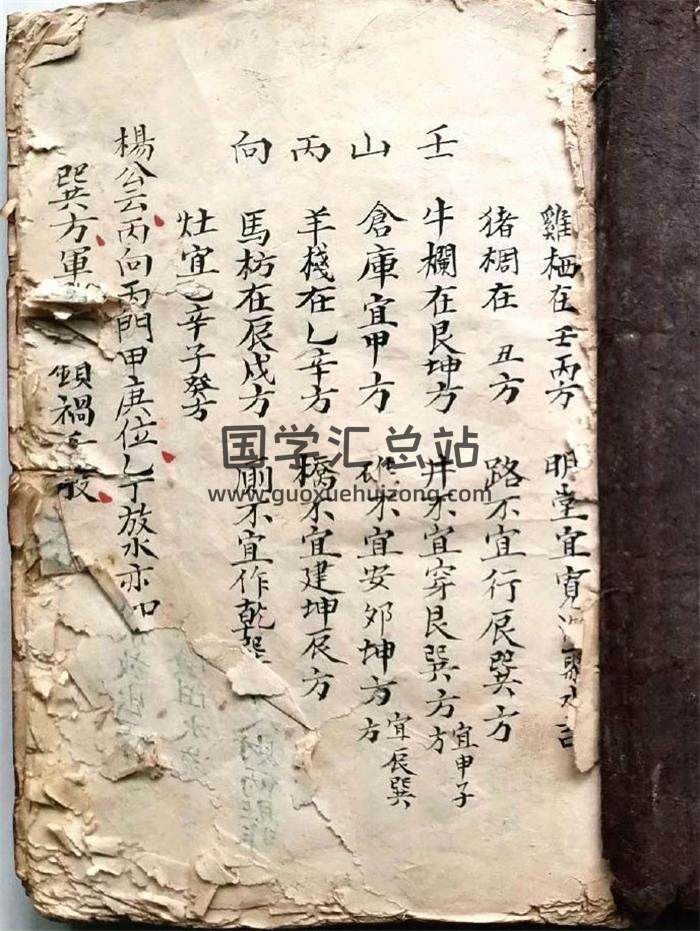 雞栖在壬丙方 明堂宜寬
猪椆在 丑方 路不宜行辰巽方
壬 牛欄在艮坤方 井不宜穿艮巽方 宜申子方
山 倉庫宜甲方 碓不宜安卯坤方 宜辰巽方
丙 羊棧在乙辛方 橋不宜建坤辰方
向 馬枋在辰戌方 廁不宜作乾巽
灶宜乙辛子癸方
楊公云丙向丙門甲庚位乙丁放水亦如
巽方軍 禍
国学汇总站
www.guoxuehuizong.com